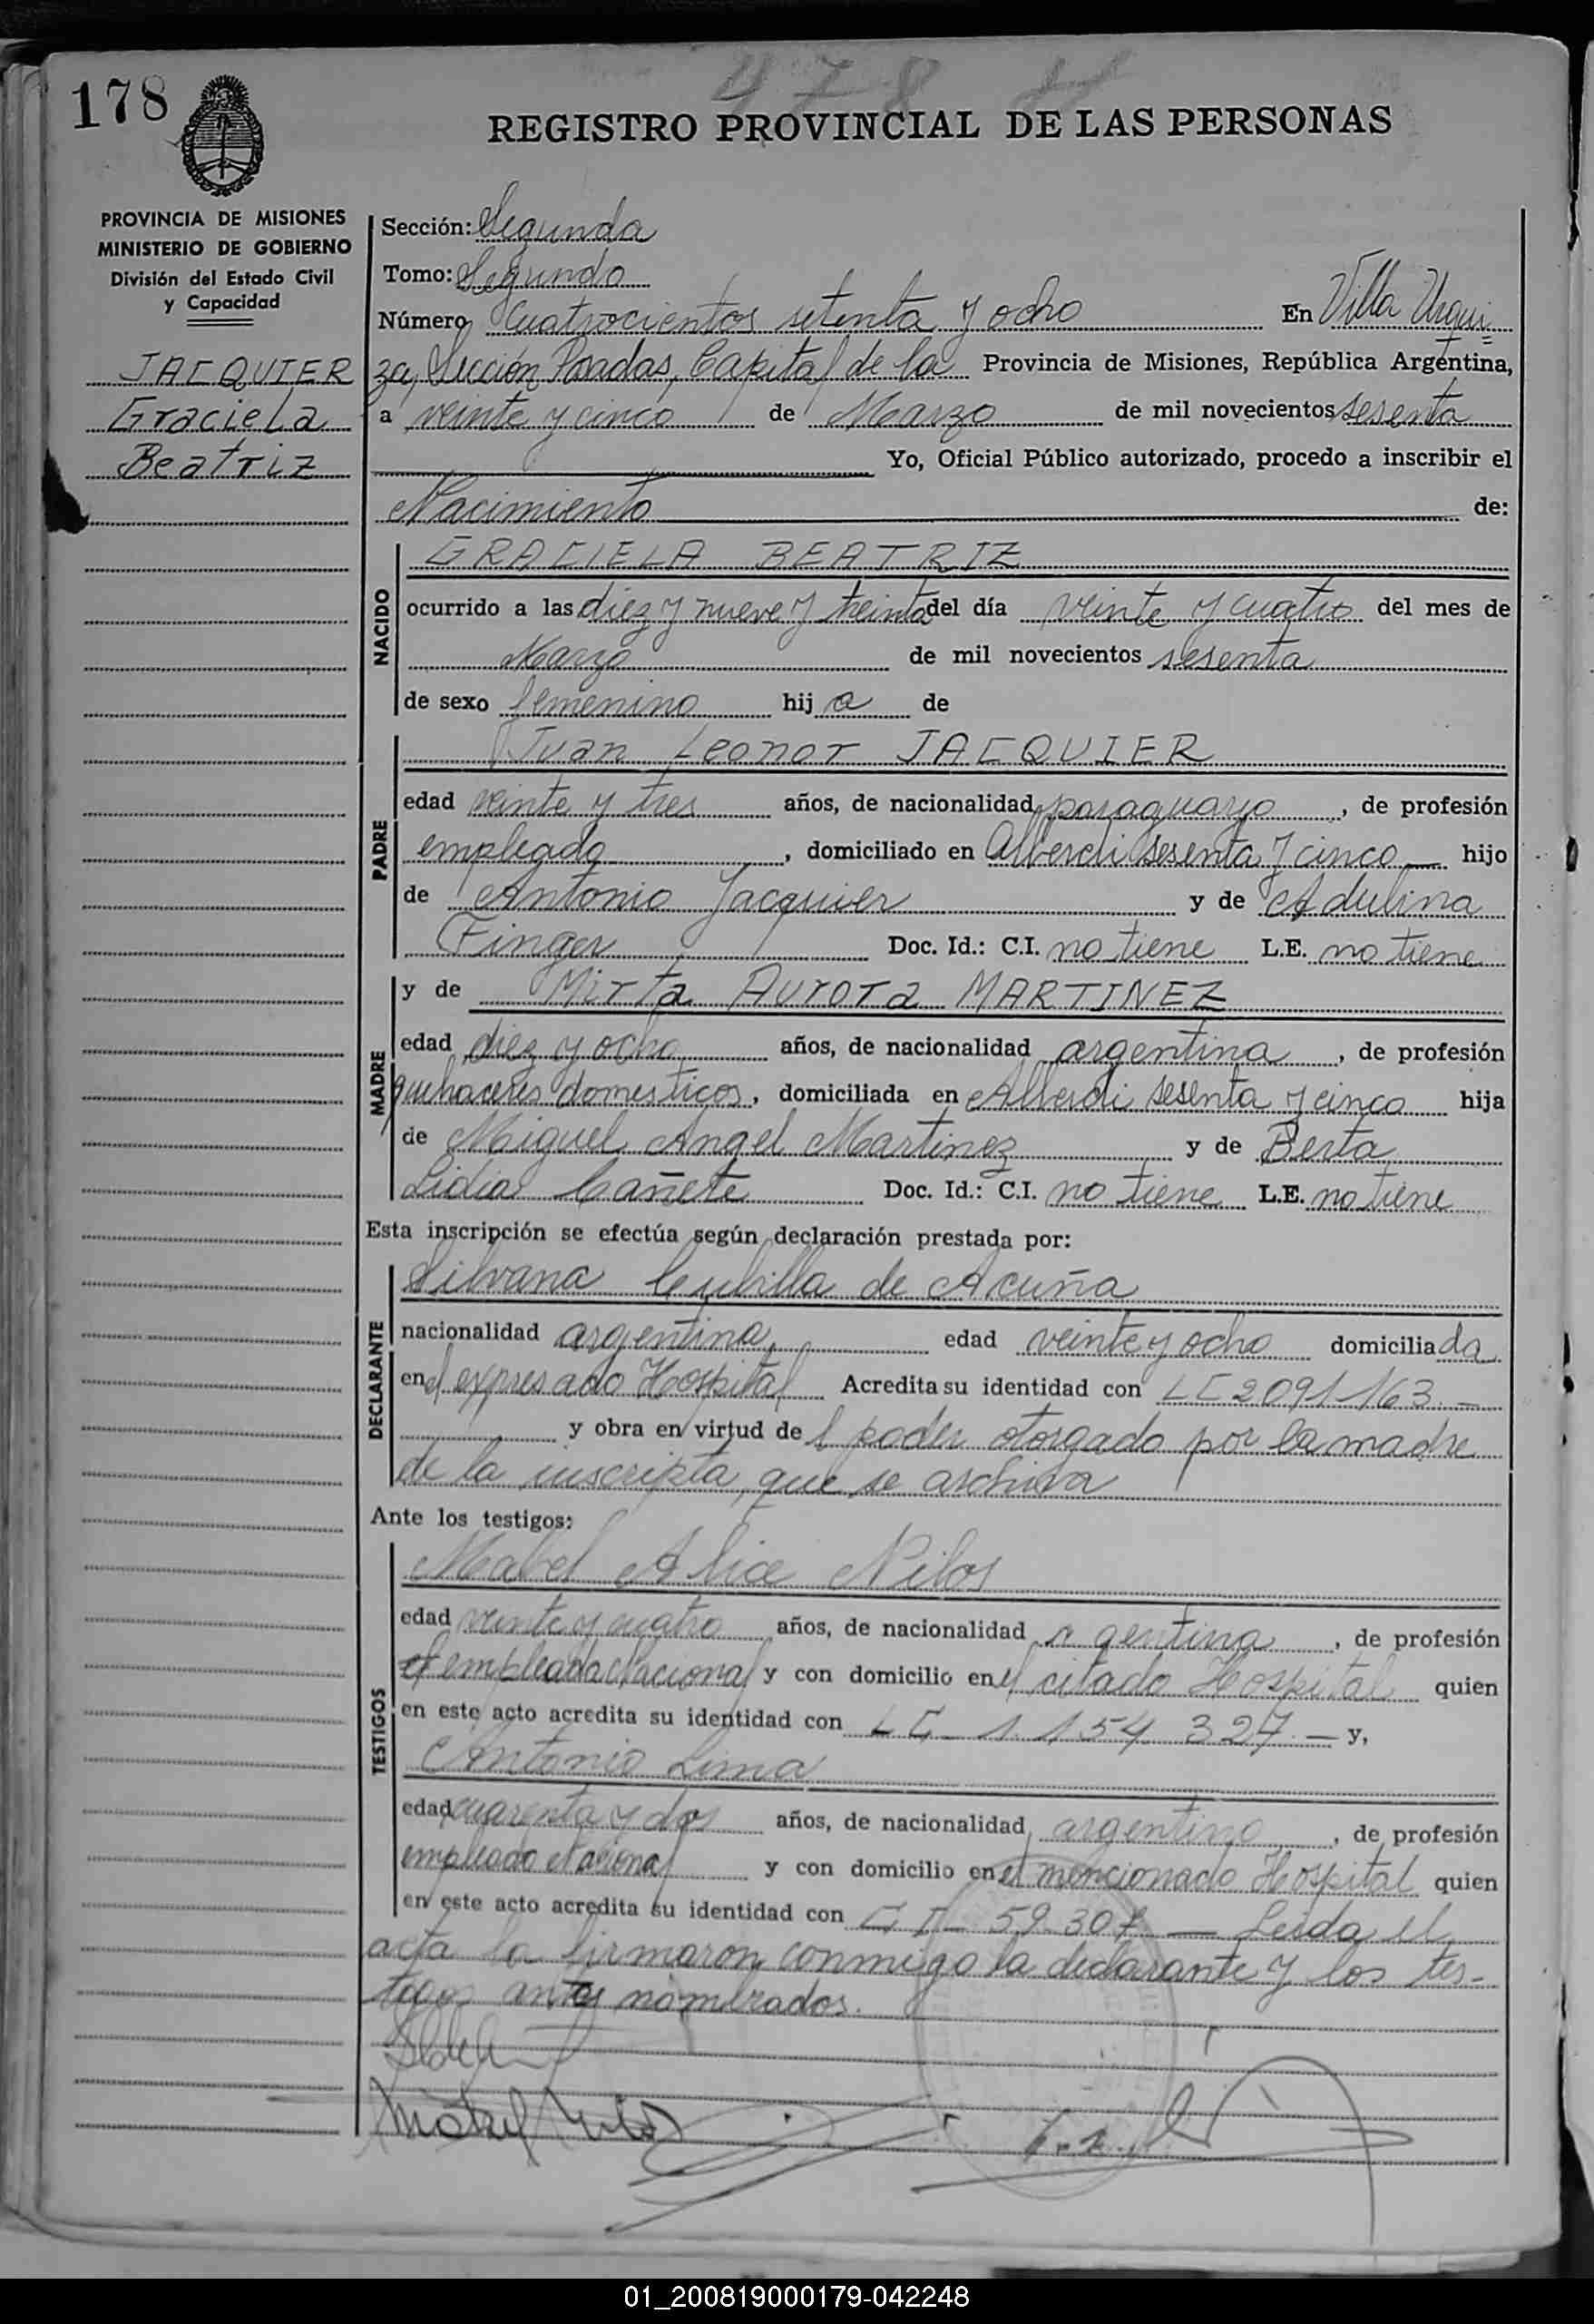 478
178
REGISTRO PROVINCIAL DE LAS PERSONAS
PROVINCIA DE MISIONES
MINISTERIO DE GOBIERNO
División del Estado Civil
y Capacidad
JACQUIER
Graciela
Beatriz
Sección: Segunda
Tomo: Segundo
Número Cuatrocientos setenta y ocho En Villa Urqui
za, Sección Posadas, Capital de la Provincia de Misiones, República Argentina,
a veinte y cinco de Marzo de mil novecientos sesenta
Yo, Oficial Público autorizado, procedo a inscribir el
Nacimiento de:
NACIDO
GRACIELA BEATRIZ
ocurrido a las diez y nueve y treinta del día veinte y cuatro del mes de
Marzo de mil novecientos sesenta
de sexo femenino hija de
PADRE
Juan Leonor JACQUIER
edad veinte y tres años, de nacionalidad paraguayo, de profesión
empleado, domiciliado en Alberdi sesenta y cinco — hijo
de Antonio Jacquier y de Adulina
Finger Doc. Id.: C.I. no tiene L.E. no tiene
MADRE
y de Mirta Aurora MARTINEZ
edad diez y ocho años, de nacionalidad argentina, de profesión
quehaceres domesticos, domiciliada en Alberdi sesenta y cinco hija
de Miguel Angel Martinez y de Berta
Lidia Cañete Doc. Id.: C.I. no tiene L.E. no tiene
Esta inscripción se efectúa según declaración prestada por:
DECLARANTE
Silvana Cubilla de Acuña
nacionalidad argentina edad veinte y ocho domiciliada
en el expresado Hospital Acredita su identidad con LC 2091163 —
y obra en virtud del poder otorgado por la madre
de la inscripta, que se archiva
Ante los testigos:
TESTIGOS
Mabel Alice Nilos
edad veinte y cuatro años, de nacionalidad argentina, de profesión
empleada Nacional y con domicilio en el citado Hospital quien
en este acto acredita su identidad con LC — 1.154.327 — y,
Antonio Lima
edad cuarenta y dos años, de nacionalidad argentino, de profesión
empleado Nacional y con domicilio en el mencionado Hospital quien
en este acto acredita su identidad con CI — — Leida el
acta la firmaron conmigo la declarante y los tes-
tigos antes nombrados.
01_200819000179-042248